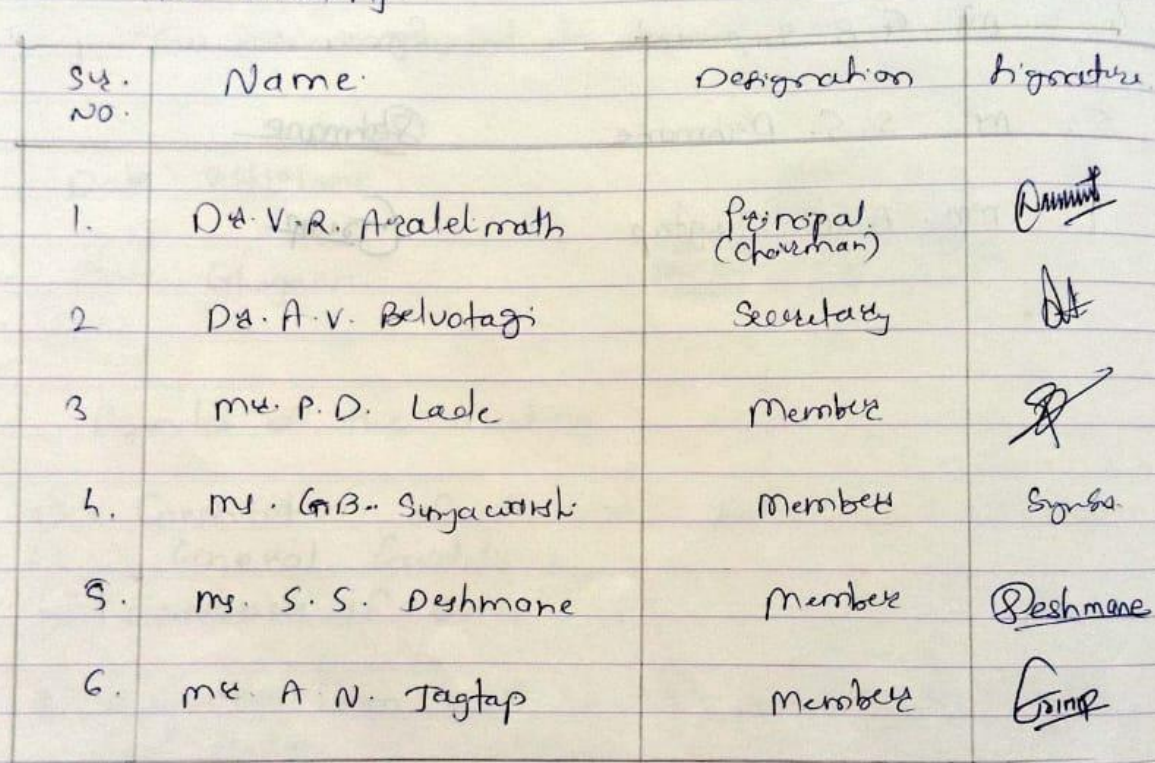 Sr. Name. Designation Signature
No.
1. Dr. V.R. Azalelimath Principal.
(Chairman)
2 Dr. A.V. Belvotagi Secretary
3 Mr. P.D. Lade Member
4. Ms. G.B. Suryawanshi Member
5. Ms. S.S. Deshmane Member Deshmane
6. Mr. A N. Jagtap Member